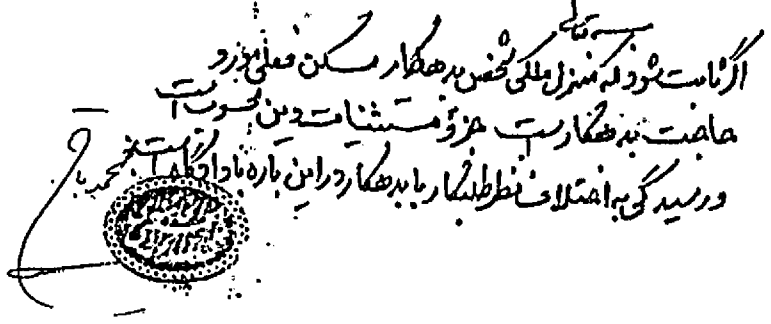 بسمه تعالی
اگر ثابت شود که منزل ملکی شخص بدهکار مسکن فعلی و مورد
حاجت بدهکار است جزؤ مستثنیات دین محسوب است
و رسیدگی به اختلاف نظر طلبکار با بدهکار در این باره با دادگاه است